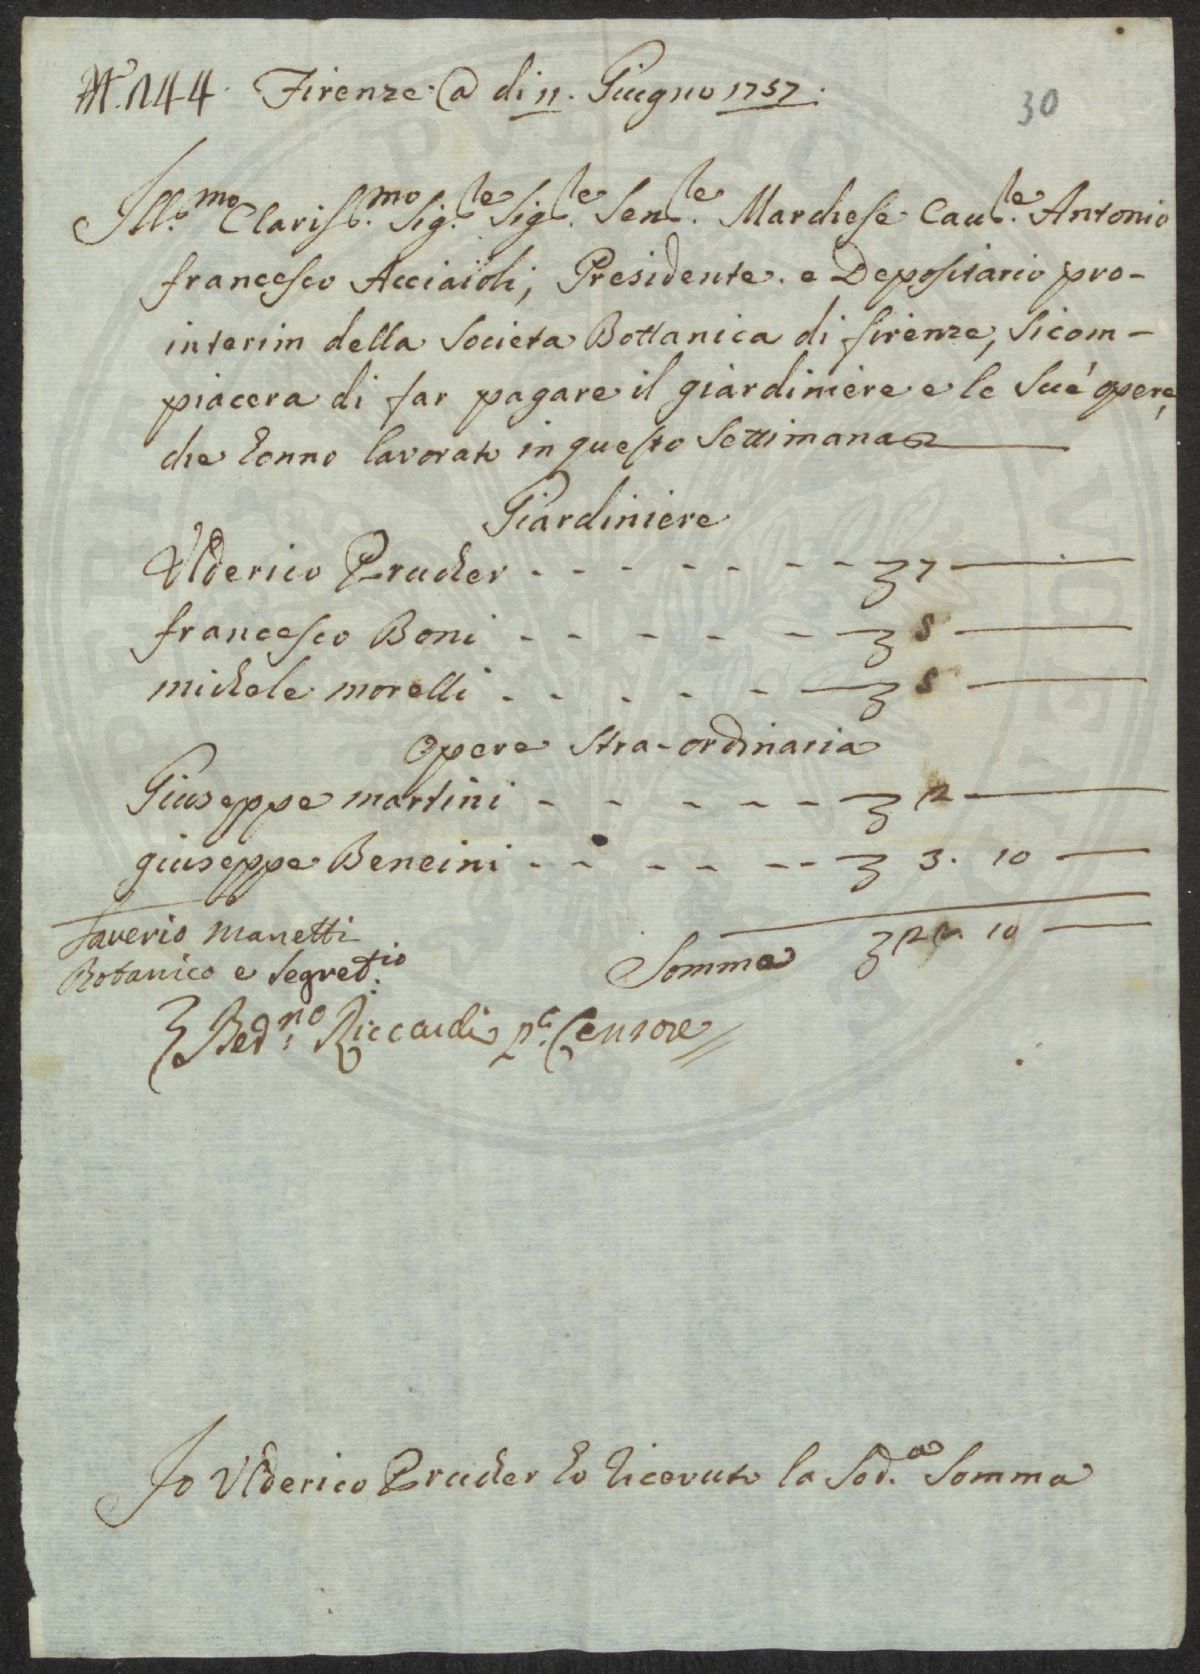 N.º 144. Firenze @ di 11. Giugno 1757.
30
Ill.mo Clariss.mo Sig.le Sig.le Sen.le Marchese Cau.le Antonio
francesco Acciaioli, Presidente e Depositario pro-
interim della Societa Bottanica di firenze, si com-
piacera di far pagare il giardiniere e le Sue opere,
che hanno lavorato in questo Settimana
Giardiniere
Ulderico Prucher - - - - - - - 7
francesco Boni - - - - - - 5
michele morelli - - - - - - 5
opere stra-ordinaria
Giuseppe martini - - - - - - 2
giuseppe Bencini - - - - - - 3. 10
Saverio Manetti
Botanico e Segret.io
Somma 22. 10
Bed.no Riccardi p.o Censore
Io Ulderico Prucher ho ricevuto la Sod.a Somma